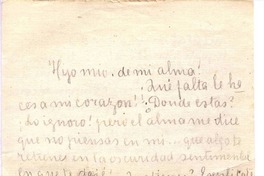 Hijo mio de mi alma!
Qué falta le ha
ces a mi corazon!! Donde estas?
Lo ignoro! pero el alma me dice
que no piensas en mi... que algo te
retiene en la oscuridad sentimental
en que te dejé!